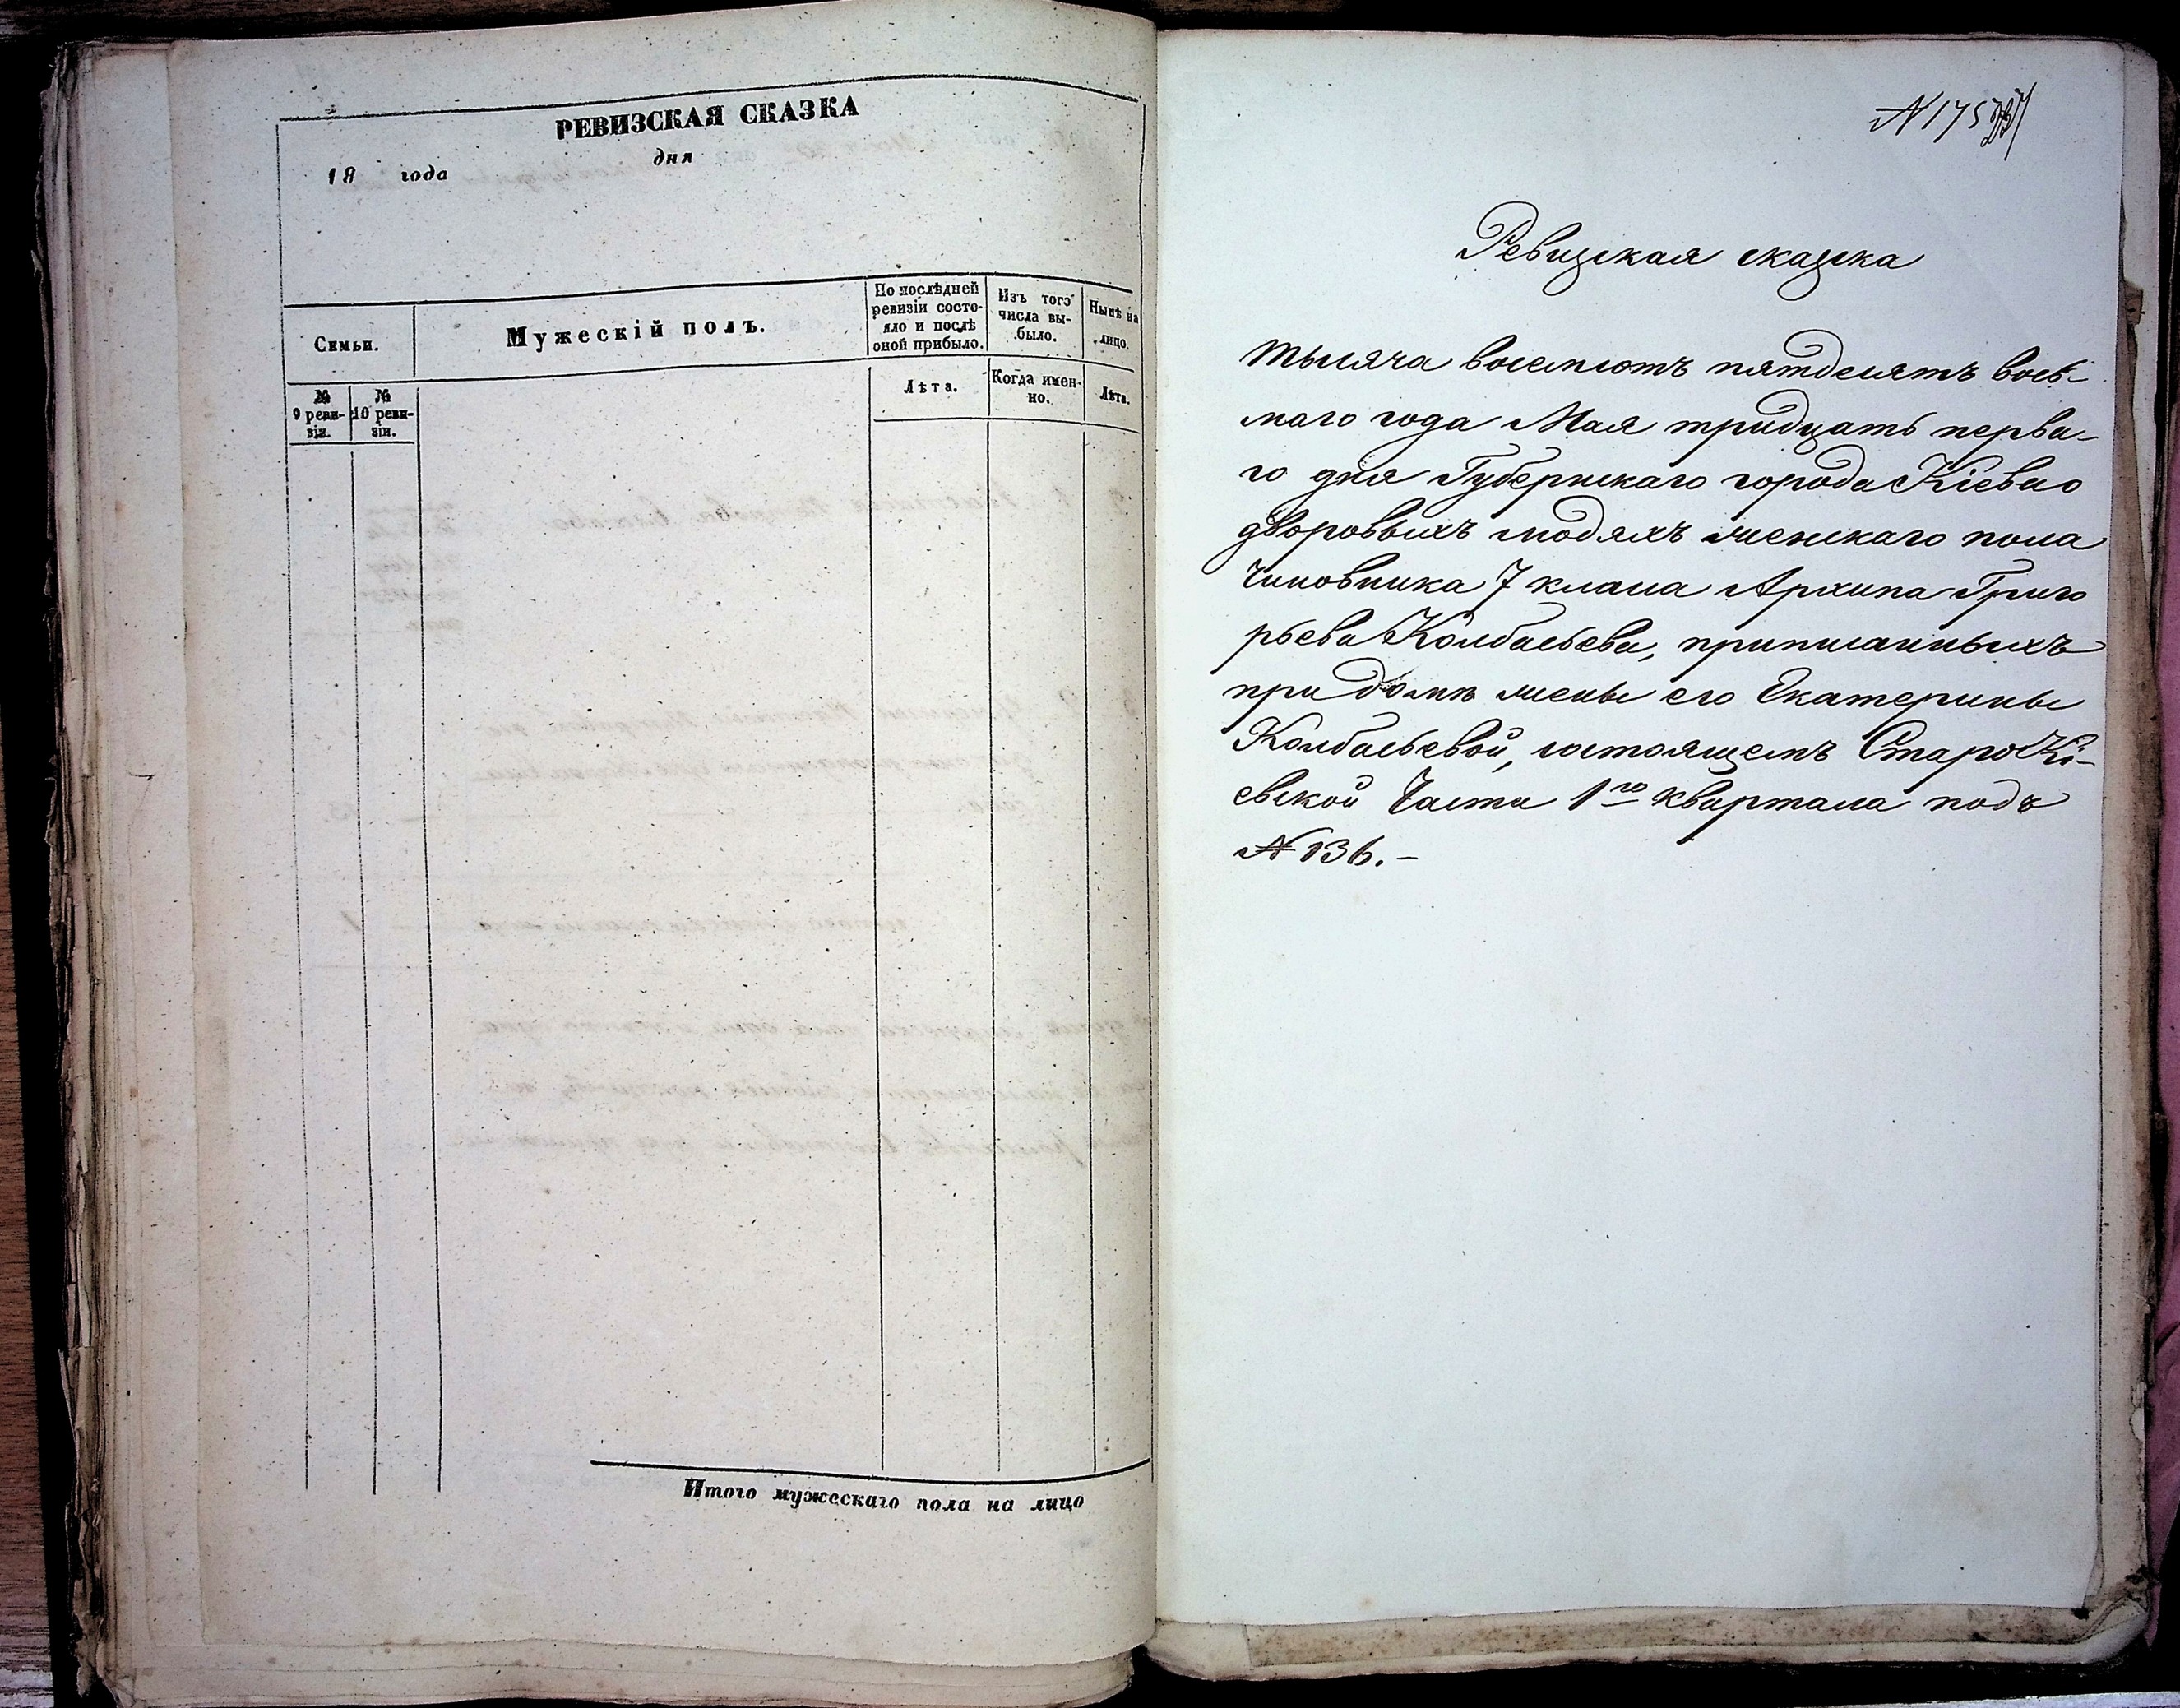 РЕВИЗСКАЯ СКАЗКА
дня
18 года
Семьи.
Мужескій полъ.
По послѣдней ревизіи состояло и послѣ оной прибыло.
Изъ того числа выбыло.
Нынѣ на лицо.
№ 9 ревизіи.
№ 10 ревизіи.
Лѣта.
Когда именно.
Лѣта.
Итого мужескаго пола на лицо
№ 175
Ревизская сказка
тысяча восемьсотъ пятдесятъ вось-
маго года Мая тридцать перва-
го дня Губернскаго города Кіева о
дворовыхъ людяхъ женскаго пола
Чиновника 7 класа Архипа Григо
рьева Колбасьева, приписанныхъ
при домѣ жены его Екатерины
Колбасьевой, состоящемъ Старокі-
евской Части 1го квартала подъ
№ 136.-